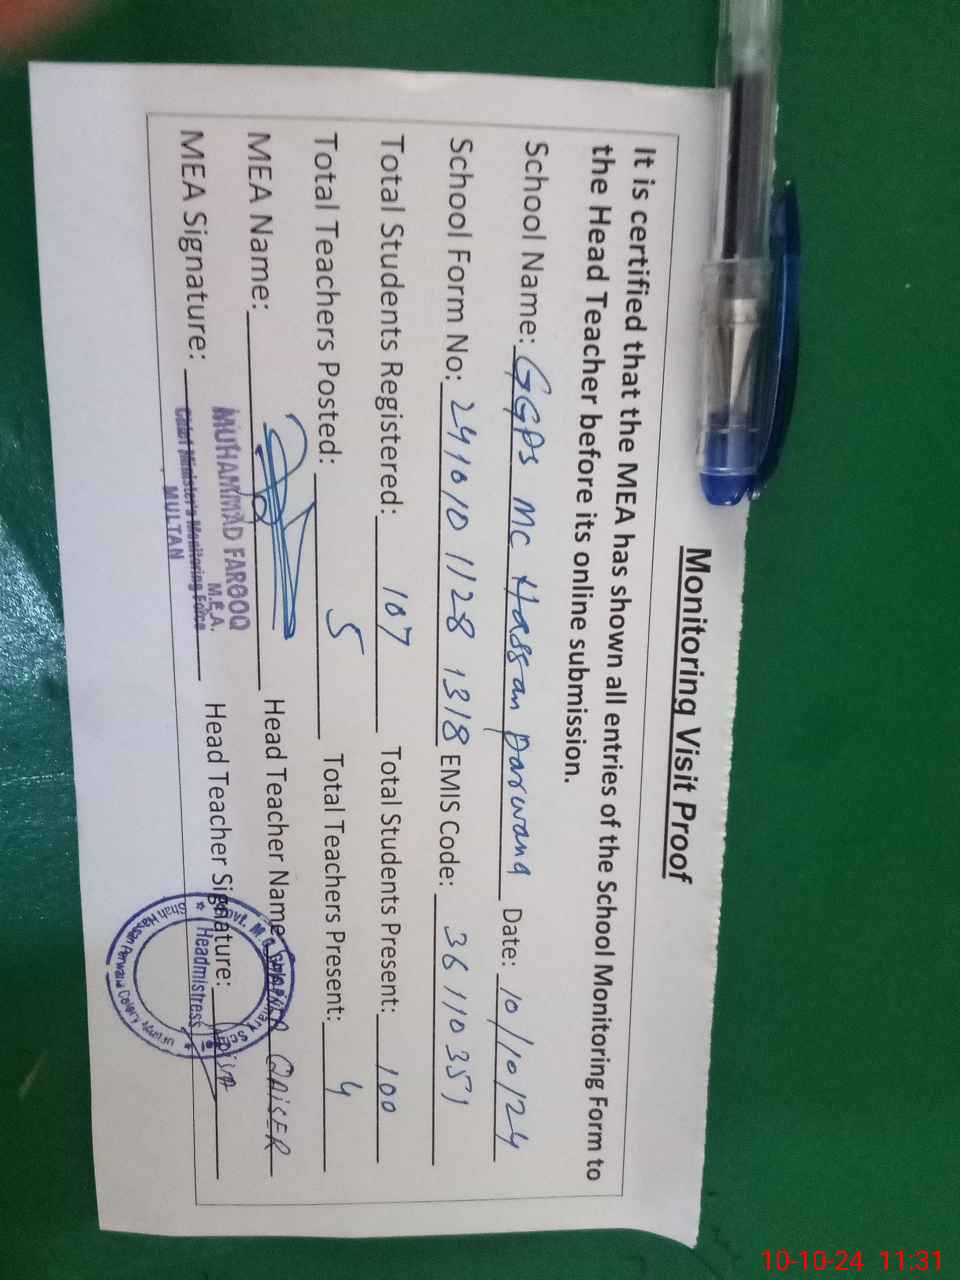 Monitoring Visit Proof
It is certified that the MEA has shown all entries of the School Monitoring Form to
the Head Teacher before its online submission.
School Name: GGPS MC Hassan parwana Date: 10/10/24
School Form No: 241010 1128 1318 EMIS Code: 36110351
Total Students Registered: 107 Total Students Present: 100
Total Teachers Posted: 5 Total Teachers Present: 4
MEA Name: Head Teacher Name: QAISER
MUHAMMAD FAROOQ
M.E.A.
MEA Signature: Head Teacher Signature:
Chief Minister's Monitoring Force
MULTAN
Govt. M.C.
Headmistress
Shah Hassan Parwana Colony Multan
10-10-24 11:31